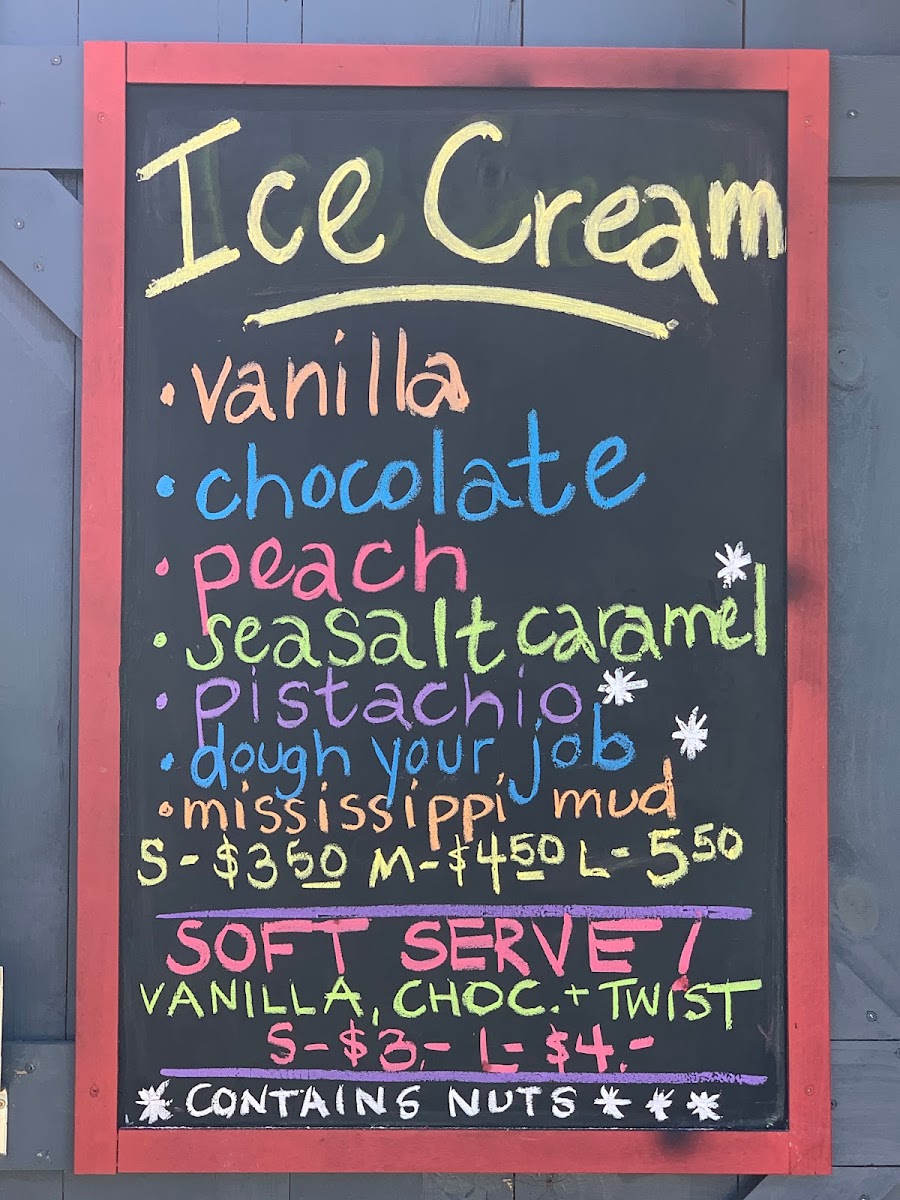 Ice Cream
• vanilla
• chocolate
• peach
• seasalt caramel *
• pistachio *
• dough your job *
• mississippi mud
S - $3 50 M - $4 50 L - 5 50
SOFT SERVE!
VANILLA, CHOC. + TWIST
S - $3.- L - $4.-
* CONTAINS NUTS * * *